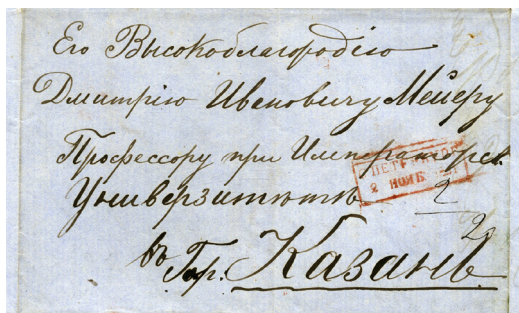 Его Высокоблагородію
Дмитрію Ивановичу Мейеру
Профессору при Императорск.
Университетѣ
2
20
въ Гор. Казань
2 НОЯБ